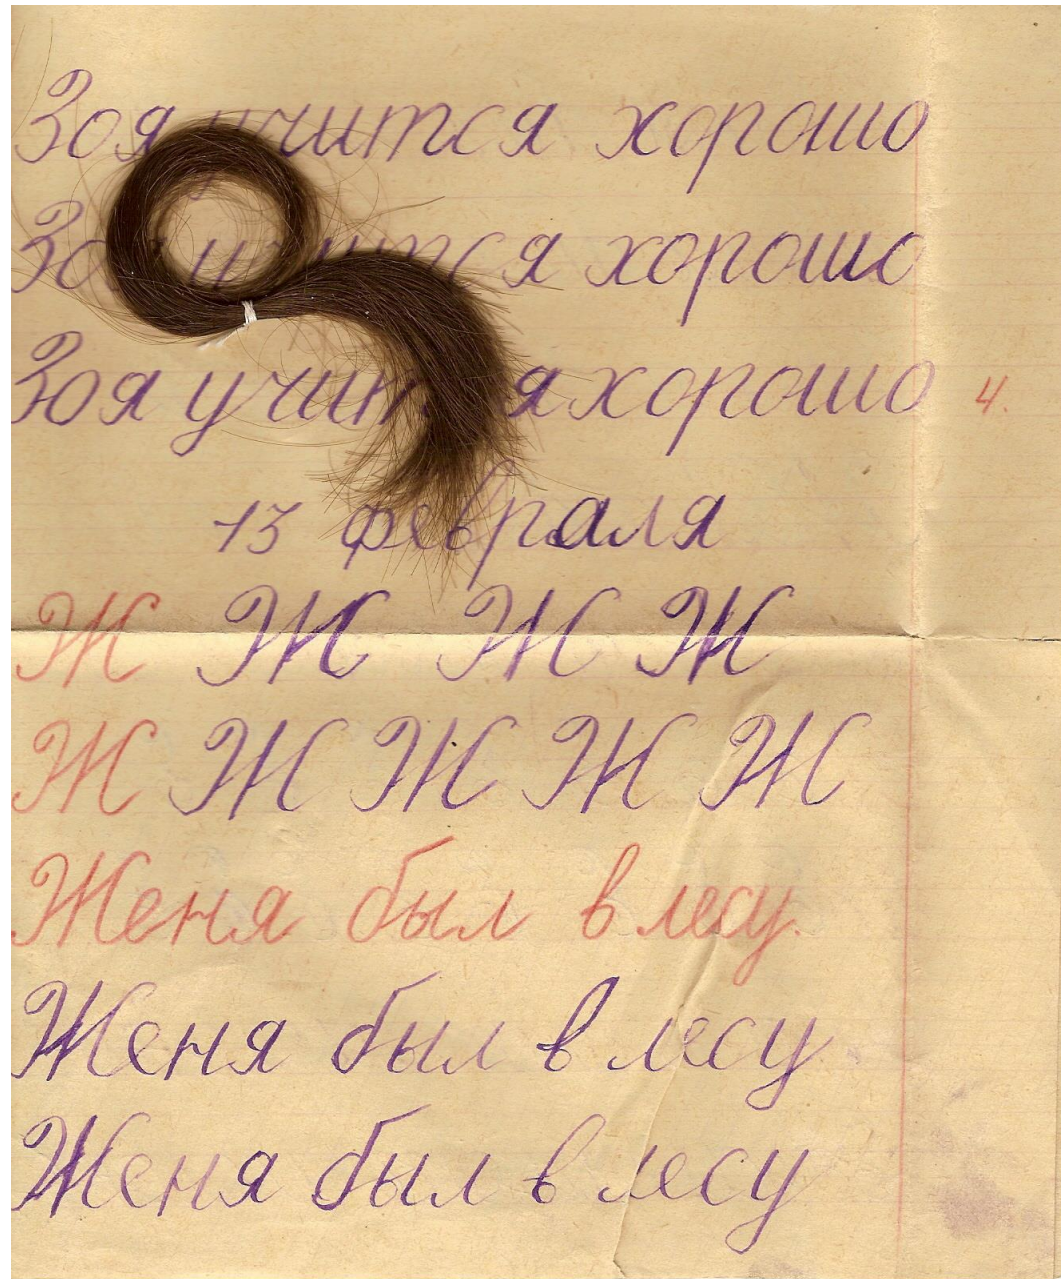 Зоя учится хорошо
Зоя учится хорошо
Зоя учится хорошо 4.
13 февраля
Ж Ж Ж Ж
Ж Ж Ж Ж Ж
Женя был в лесу.
Женя был в лесу
Женя был в лесу